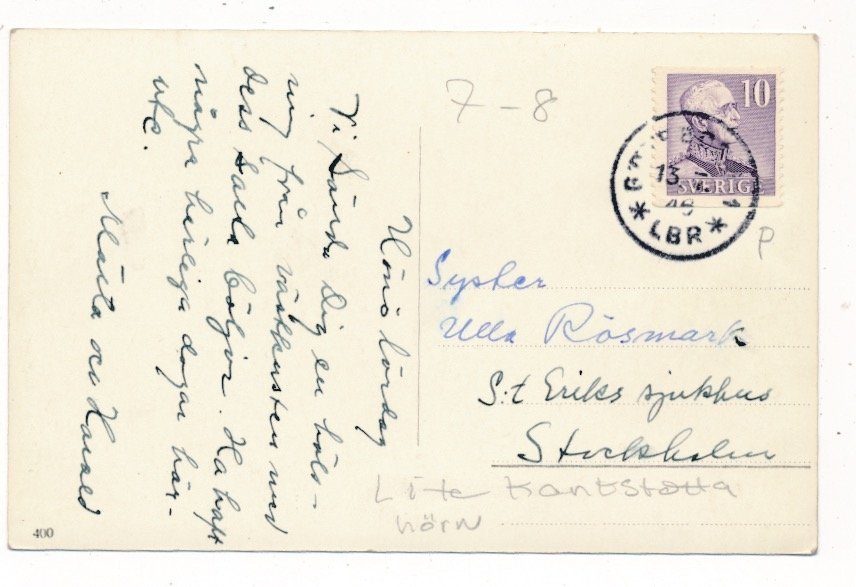 Hönö lördag
Vi sända Dig en häls-
ning från västkusten med
dess salta böljor. Ha haft
några härliga dagar här-
ute.
Märta och Harald
7 - 8
10
SVERIGE
13
46
* LBR *
P
Syster
Ulla Rösmark
S:t Eriks sjukhus
Stockholm
Lite kantstötta
hörn
400